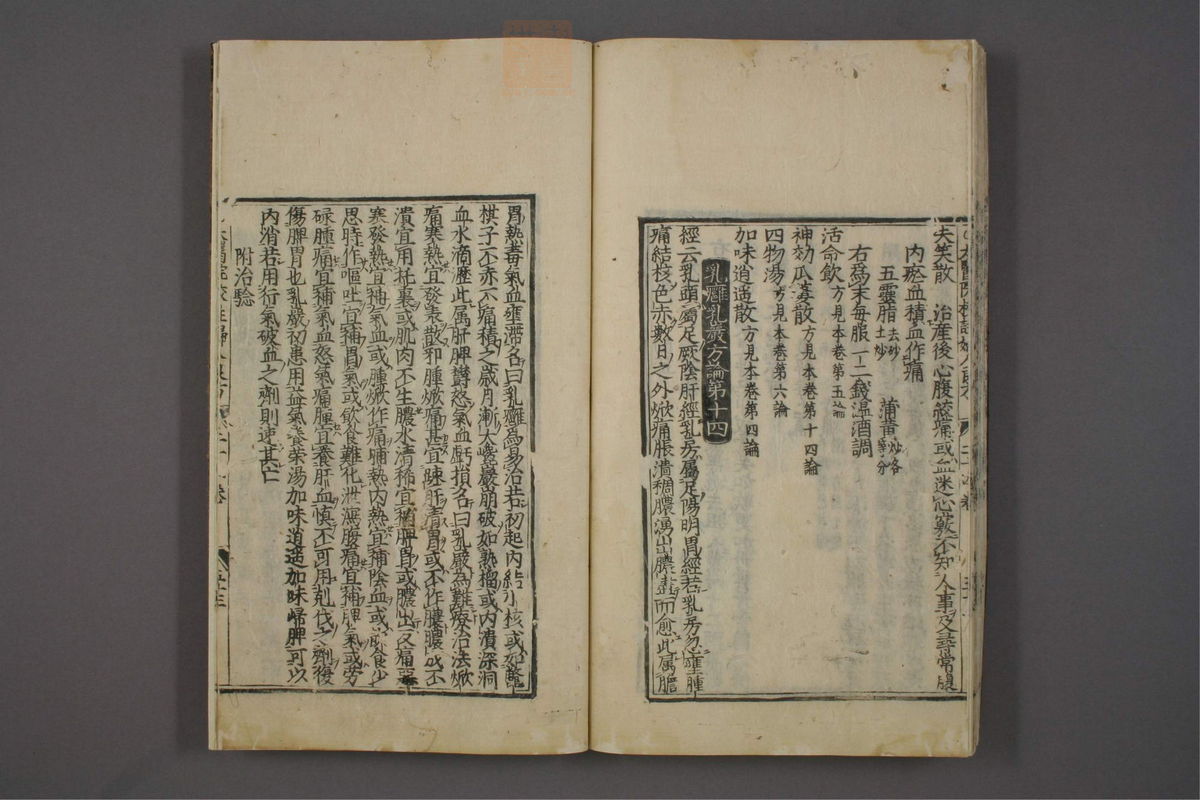 失笑散　治産後心腹㽲痛或血迷心竅不知人事及尋常腹
内瘀血積血作痛
五靈脂去砂土炒　蒲黄炒各等分
右爲末毎服一二錢温酒調
活命飲方見本巻第五論
神効瓜蔞散方見本巻第十四論
四物湯方見本巻第六論
加味逍遥散方見本巻第四論
乳癰乳巖方論第十四
經云乳頭屬足厥陰肝經乳房屬足陽明胃經若乳房忽壅腫
痛結核色赤數日之外焮痛脹潰稠膿湧出膿盡而愈此属膽
胃熱毒氣血壅滞名曰乳癰爲易治若初起内結小核或如鼈
棋子不赤不痛積之歳月漸大巉巖崩破如熟榴或内潰深洞
血水滴瀝此属肝脾欝怒氣血虧損名曰乳巖為難療治法焮
痛寒熱宜發表散邪腫焮痛甚宜疎肝清胃或不作膿膿成不
潰宜用托裏或肌肉不生膿水清稀宜補脾胃或膿出反痛惡
寒發熱宜補氣血或腫焮作痛晡熱内熱宜補陰血或飲食少
思時作嘔吐宜補胃氣或飲食難化泄瀉腹痛宜補脾氣或労
碌腫痛宜補氣血怒氣痛腫宜養肝血慎不可用剋伐之劑復
傷脾胃也乳巖初患用益氣養栄湯加味逍遥加味帰脾可以
内消若用行氣破血之劑則速其亡
附治驗